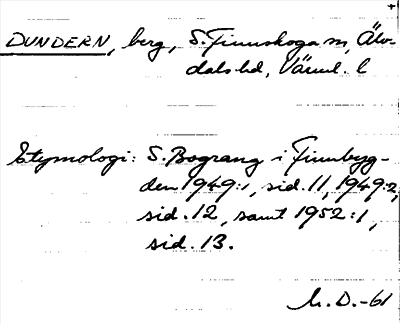 DUNDERN, berg, S. Finnskoga sn, Älv-
dals hd, Värml. l
Etymologi: S. Bograng i Finnbyg-
den 1949:1, sid. 11, 1949:2,
sid. 12, samt 1952:1,
sid. 13.
D.-61